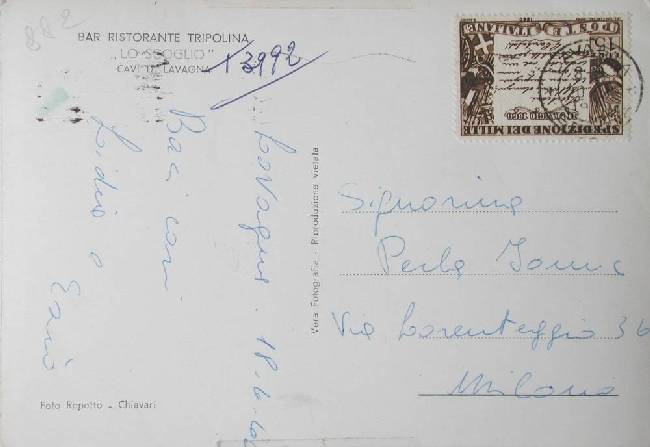 882
BAR RISTORANTE TRIPOLINA
„LO SCOGLIO"
CAVI DI LAVAGNA
13992
Lavagna. 18.6.
Baci cari
Lidia e
Vera Fotografia - Riproduzione vietata
Foto Repetto - Chiavari
POSTE ITALIANE
1960
5 MAGGIO 1860
SPEDIZIONE DEI MILLE
Signorina
Perla
Via Lorenteggio 36
Milano